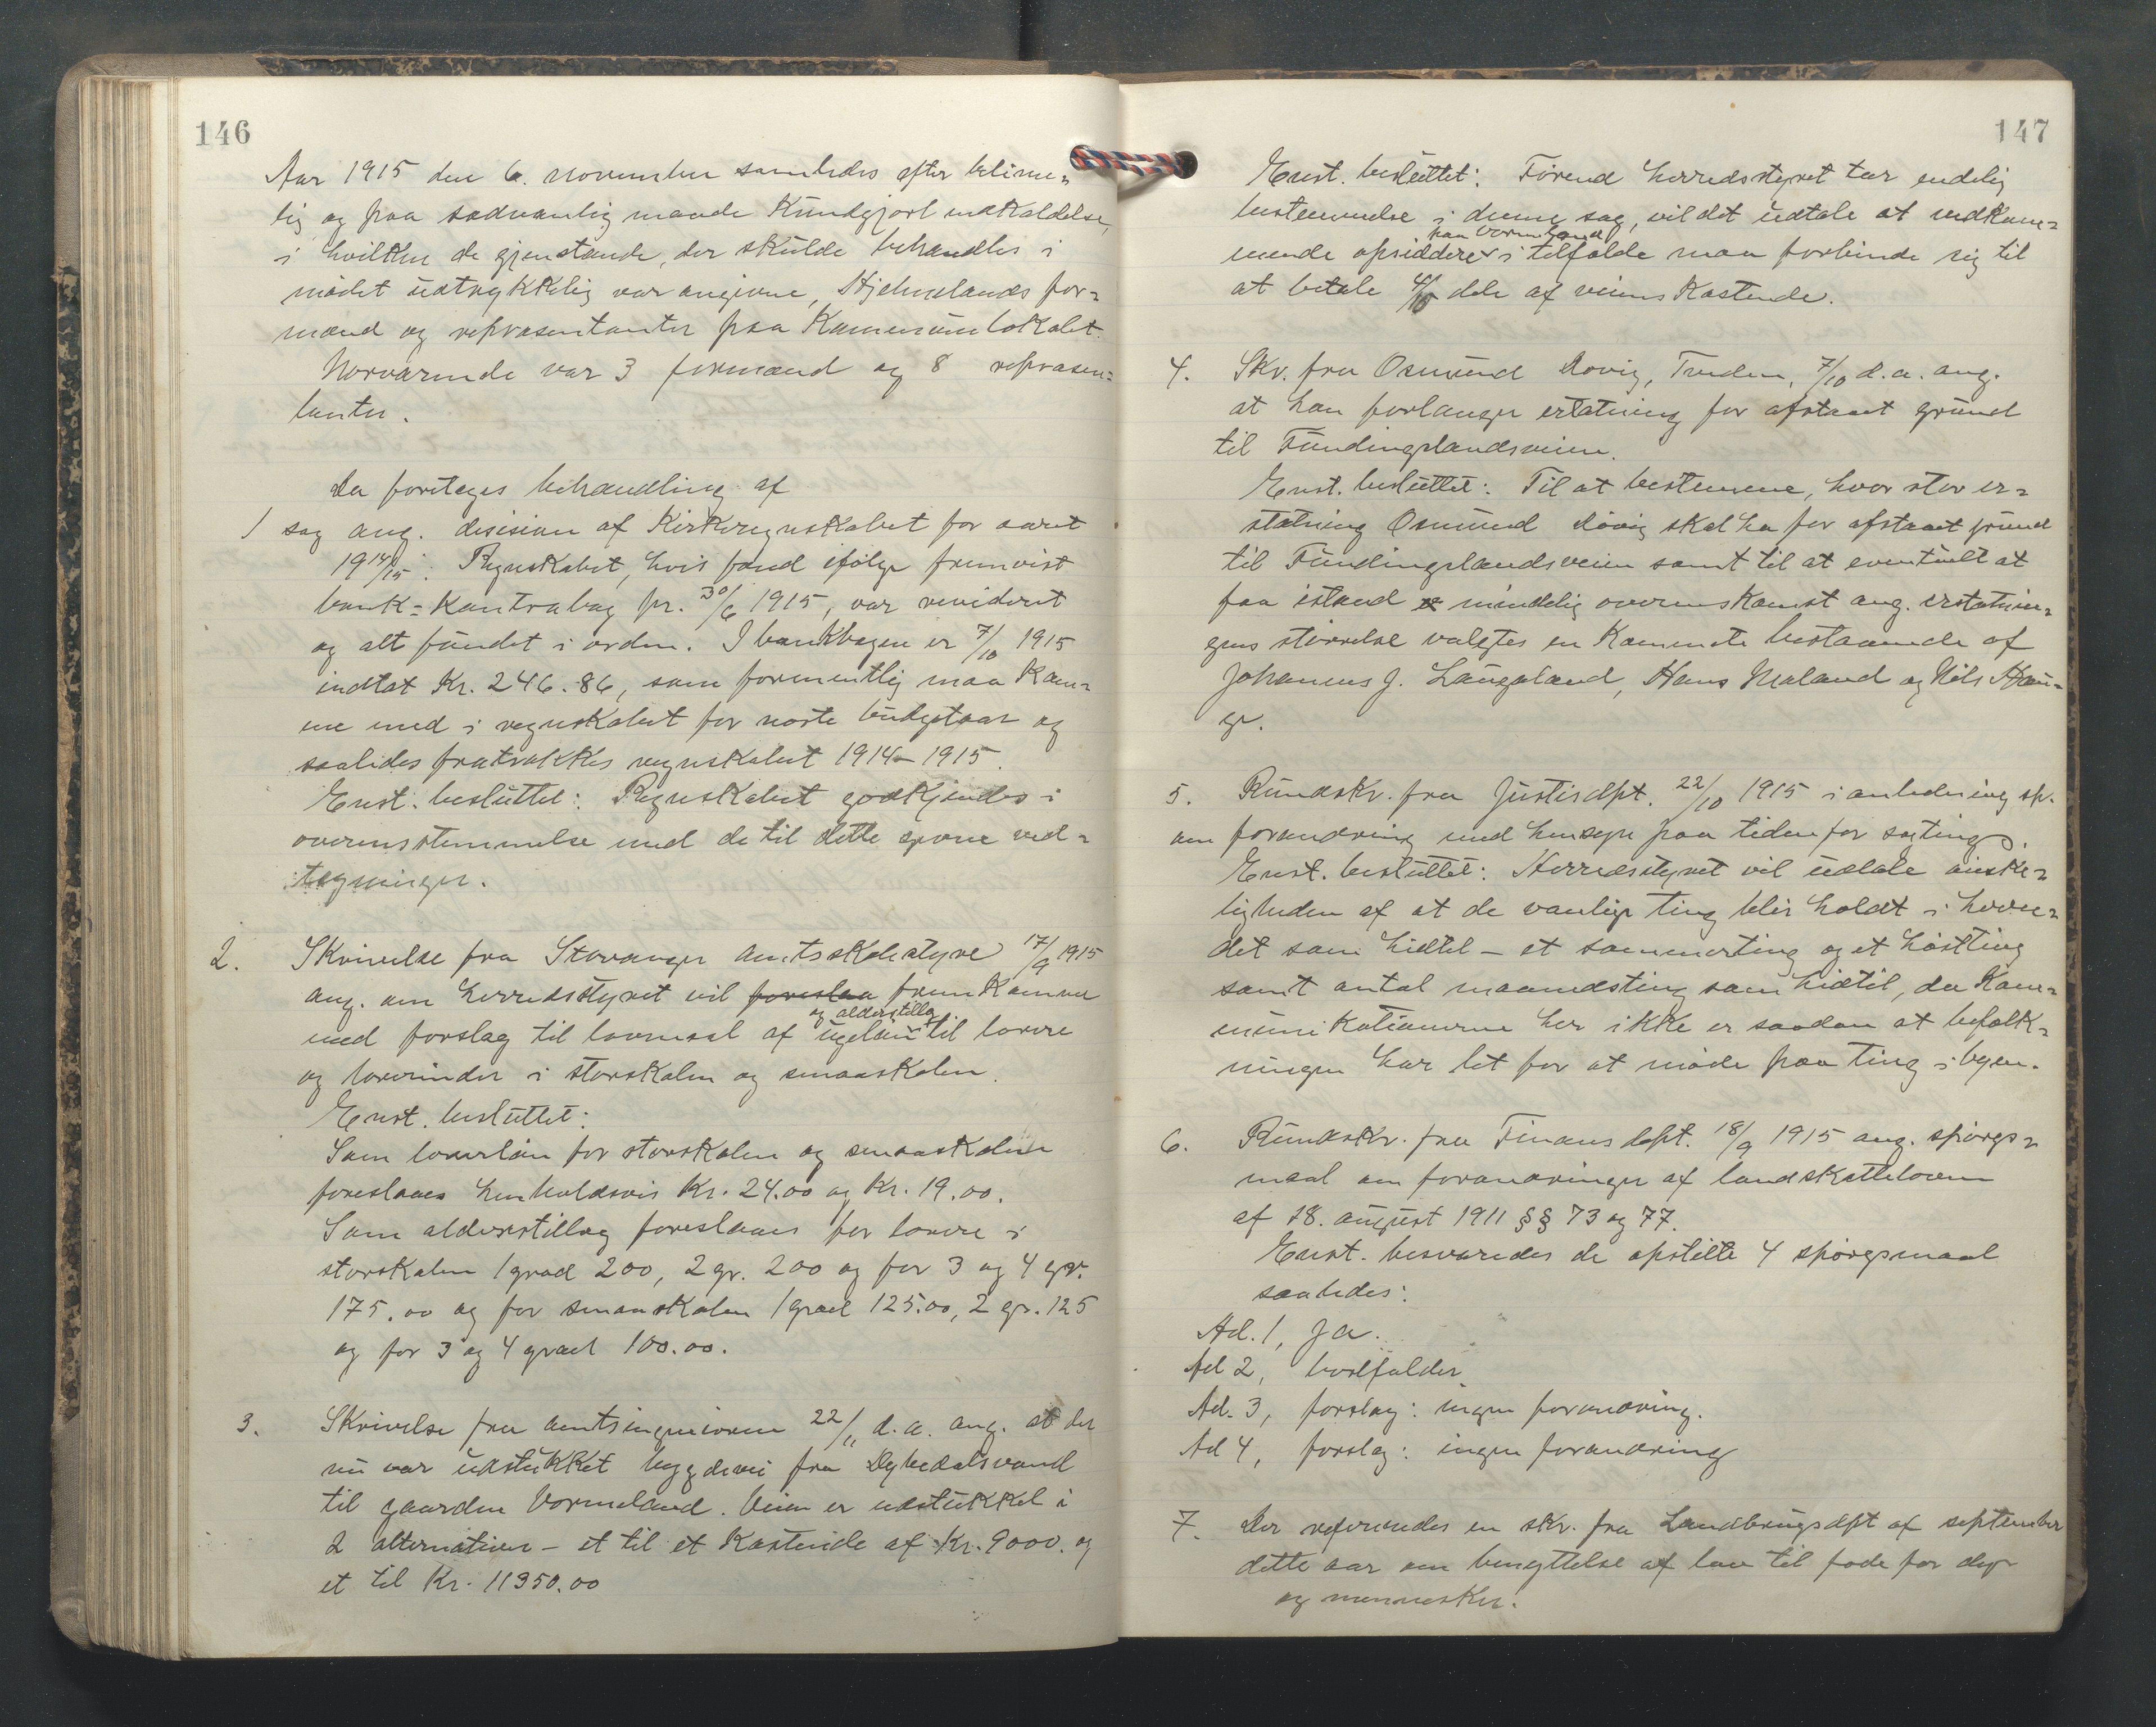 146
Aar 1915 den 6. november samledes efter betime-
lig og paa sædvanlig maade Kundgjort indkaldelse,
i hvilken de gjenstande, der skulde behandles i
mødet udtrykkelig var angivne, Hjelmelands for-
mænd og repræsentanter paa Kommunelokalet.
Nærværende var 3 formænd og 8 repræsen-
tanter.
Da foretoges behandling af
1 sag ang. desision af Kirkeregnskabet for aaret
1914/15: Regnskabet, hvis fond ifølge fremvist
bank-Kontrabog pr. 30/6 1915, var revideret
og alt fundet i orden. I bankbogen er 7/10 1915
indtat Kr. 246.86, som formentlig maa Kom-
me med i regnskabet for næste budgetaar og
saaledes fratrækkes regnskabet 1914-1915.
Enst. besluttet: Regnskabet godkjendes i
overensstemmelse med de til dette gjorne ved-
tegninger.
2. Skrivelse fra Stavanger amtsskolestyre 17/9 1915
ang. om herredsstyret vil foreslaa fremkomme
og alderstillæg
med forslag til lovmæssl af ugeløn til lærere
og lærerinder i storskolen og smaaskolen.
Enst. besluttet:
Som lærerløn for storskolen og smaaskolen
foreslaaes henholdsvis Kr. 24.00 og Kr. 19.00.
Som alderstillæg foreslaaes for lærere i
storskolen 1 grad 200, 2 gr. 200 og for 3 og 4 gr.
175.00 og for smaaskolen 1 grad 125.00, 2 gr. 125
og for 3 og 4 grad 100.00.
3. Skrivelse fra amtsingeniøren 22/11 d.a. ang. at der
nu var udstukket bygdevei fra Dybedalsvand
til gaarden Vormeland. Veien er udstukket i
2 alternativer - et til et Kostende af Kr. 9000. og
et til Kr. 11350.00
147
Enst. besluttet: Førend herredsstyret tar endelig
bestemmelse i denne sag, vil det udtale at vedkom-
paa Vormeland
mende opsiddere i tilfælde maa forbinde sig til
at betale 4/10 dele af veiens Kostende.
4. Skr. fra Osmund Røvig, Tveden, 7/10 d.a. ang.
at han forlanger erstatning for afstaaet grund
til Fundingslandsveien.
Enst. besluttet: Til at bestemme, hvor stor er-
statning Osmund Røvig skal ha for afstaaet grund
til Fundingslandsveien samt til at eventuelt at
faa istand mindelig overenskomst ang. erstatnin-
gens størrelse valgtes en Komite bestaaende af
Johannes J. Laugaland, Hans Mæland og Nils Hau-
ge.
5. Rundskr. fra Justisdpt. 22/10 1915 i anledning sp.
om forandring med hensyn paa tiden for sagting.
Enst. besluttet: Herredsstyret vil udtale ønske-
ligheden af at de vanlige ting blir holdt i hove-
det som hidtil - et sommerting og et høstting
samt antal maanedsting som hidtil, da Kom-
munikationerne her ikke er saadan at befolk-
ningen har let for at møde paa ting i byen.
6. Rundskr. fra Finansdept. 18/9 1915 ang. spørgs-
maal om forandringer af landskatteloven
af 18. august 1911 §§ 73 og 77.
Enst. besvaredes de opstilte 4 spørgsmaal
saaledes:
Ad. 1, Ja.
Ad 2, bortfalder.
Ad. 3, forslag: ingen forandring.
Ad 4, forslag: ingen forandring
7. Der refereredes en skr. fra Landbrugsdpt af september
dette aar om benyttelse af lav til føde for dyr
og mennesker.